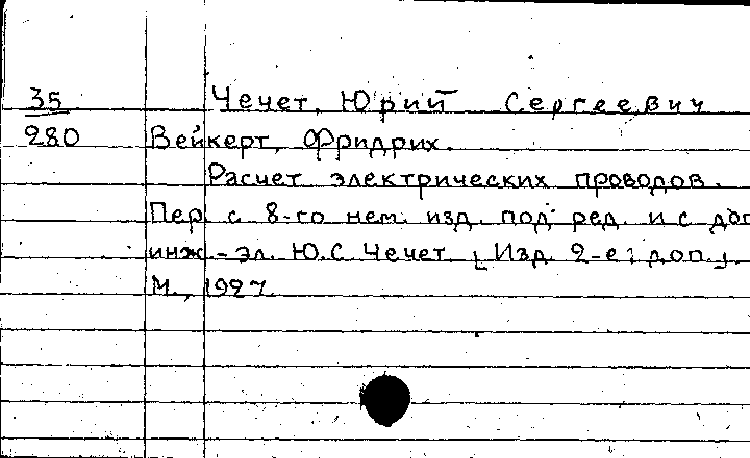 35 Чечет, Юрий Сергеевич
280 Вейкерт, Фридрих.
Расчет электрических проводов.
Пер с 8-го нем. изд. под ред. и с доп
инж-эл. Ю.С. Чечет. [Изд. 2-е, доп.].
М., 1927.